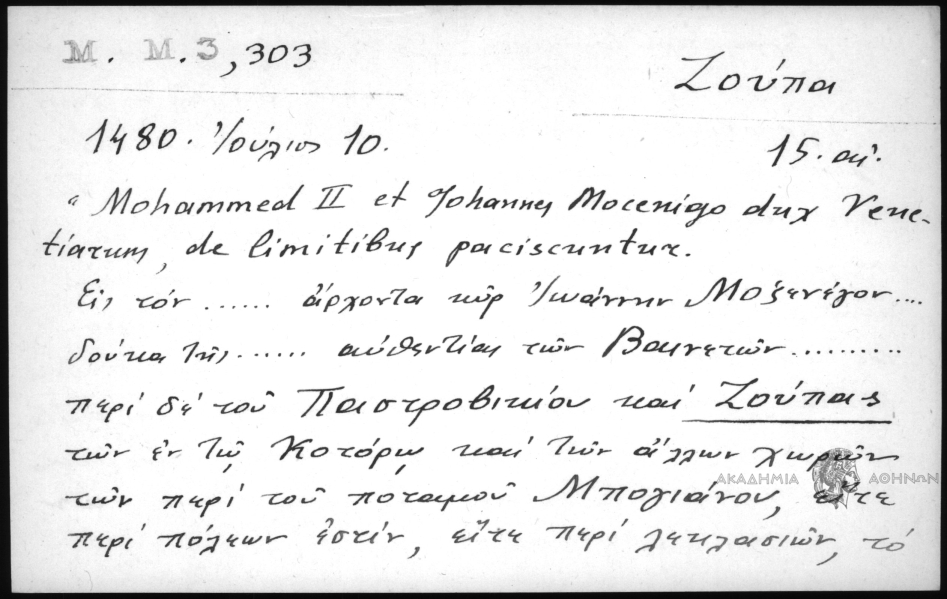 M. M. 3, 303
Ζούπα
1480. Ἰούλιος 10.
15. αἰ.
"Mohammed II et Johannes Mocenigo dux Vene-
tiarum, de limitibus paciscuntur.
Εἰς τόν ...... ἄρχοντα κῦρ Ἰωάννην Μοξενέγον ....
δούκα τῆς ...... αὐθεντίας τῶν Βενετῶν .........
περί δέ τοῦ Παστροβικίου καί Ζούπας
τῶν ἐν τῷ Κοτόρῳ καί τῶν ἄλλων χωρῶν
ΑΚΑΔΗΜΙΑ ΑΘΗΝΩΝ
τῶν περί τοῦ ποταμοῦ Μπογιάνου, εἴτε
περί πόλεων ἐστίν, εἴτε περί, τό